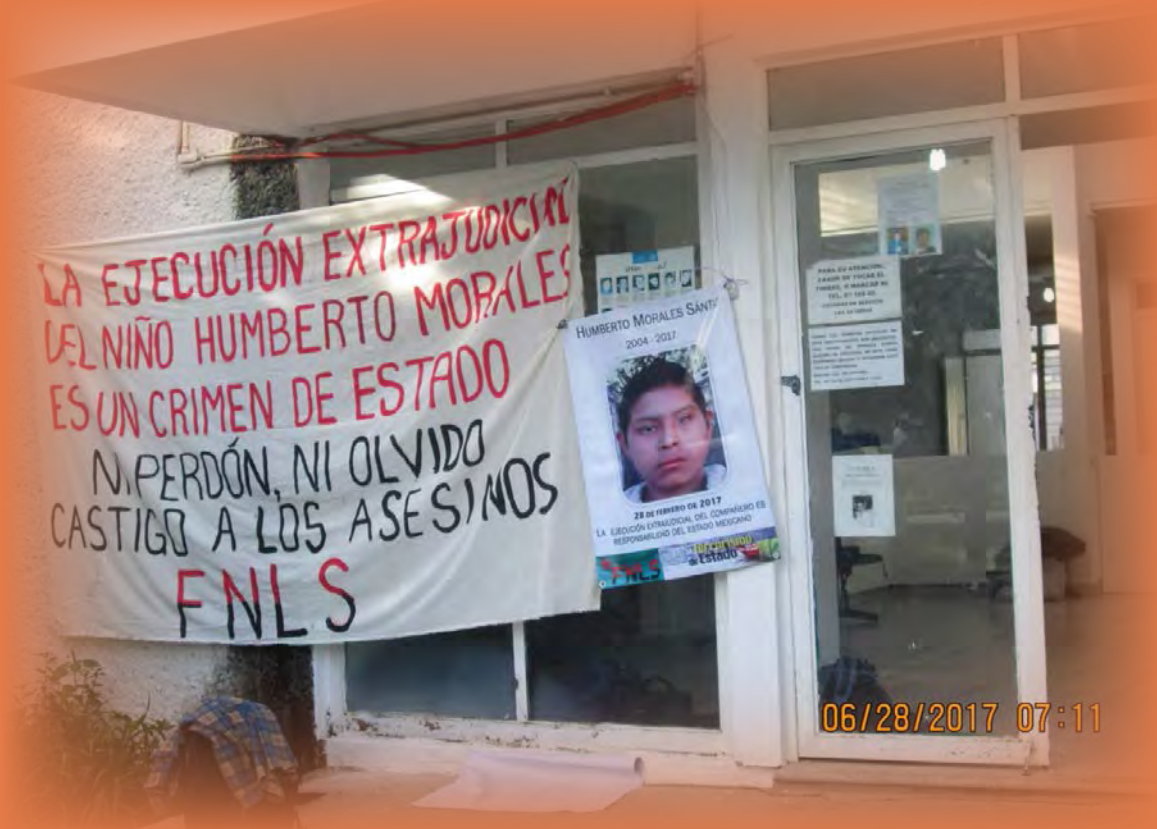 LA EJECUCIÓN EXTRAJUDICIAL
DEL NIÑO HUMBERTO MORALES
ES UN CRIMEN DE ESTADO
NI PERDÓN, NI OLVIDO
CASTIGO A LOS ASESINOS
FNLS
HUMBERTO MORALES SANTI
2004 - 2017
28 DE FEBRERO DE 2017
LA EJECUCIÓN EXTRAJUDICIAL DEL COMPAÑERO ES
RESPONSABILIDAD DEL ESTADO MEXICANO
FNLS
Terrorismo
de Estado
PARA SU ATENCIÓN,
FAVOR DE TOCAR EL
TIMBRE, O MARCAR AL
06/28/2017 07:11